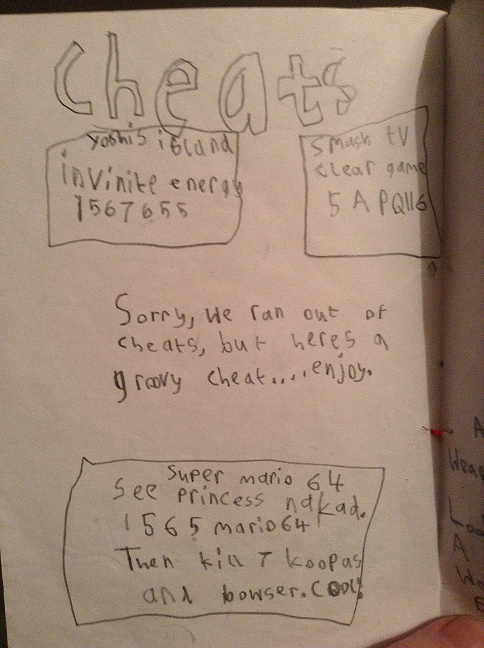 Cheats
yoshis island
invinite energy
1567655
Smash tv
clear game
5 A PQ116
Sorry, we ran out of
cheats, but heres a
groovy cheat....enjoy.
Super mario 64
See princess nakad.
1565 mario64
Then kill 7 koopas
and bowser. COOL!
A